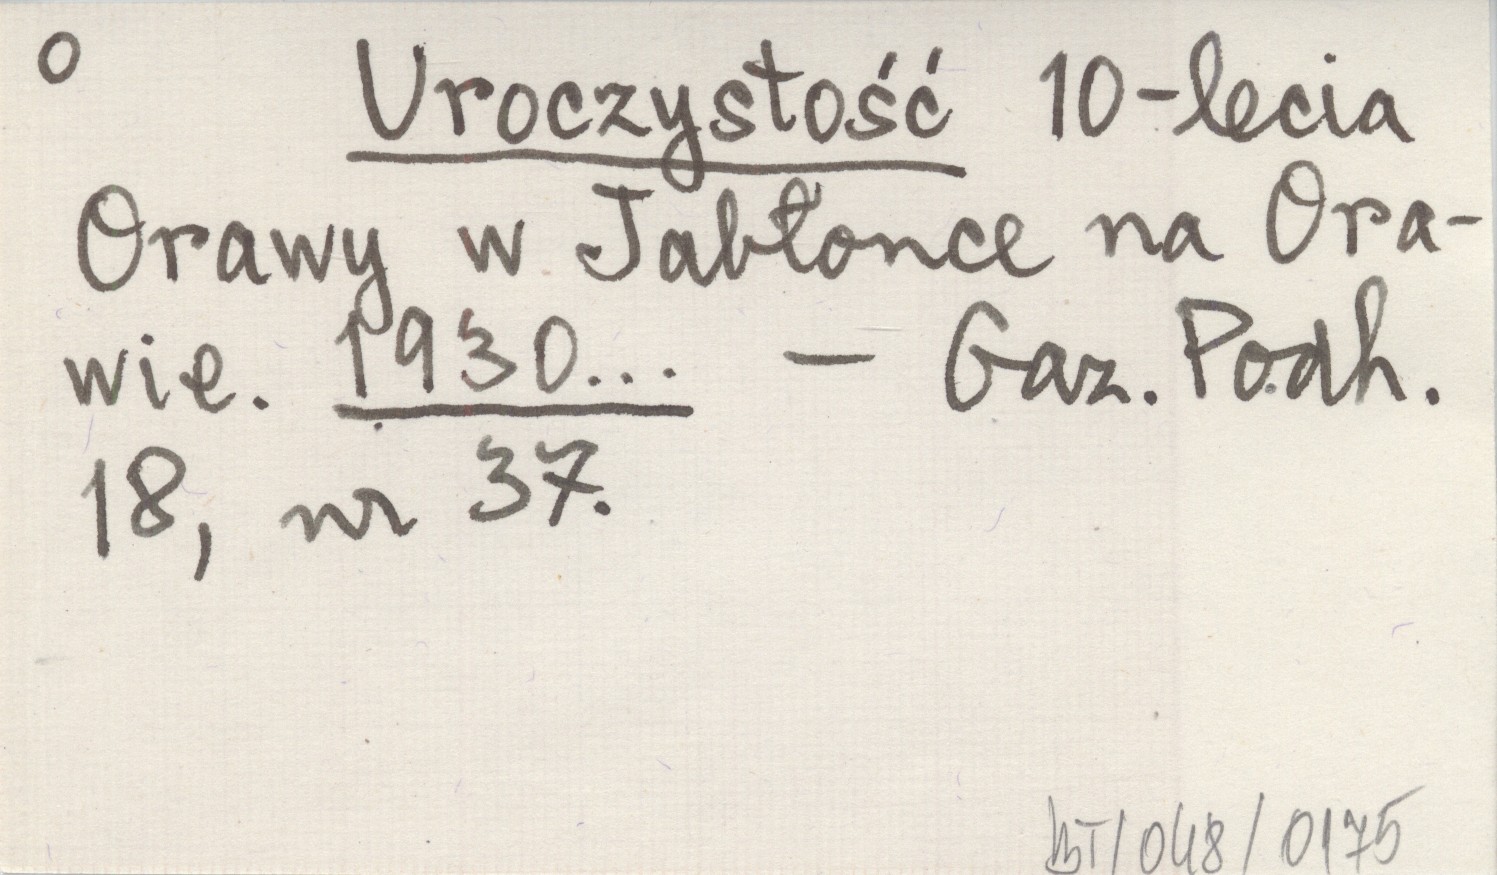 O
Uroczystość 10-lecia
Orawy w Jabłonce na Ora-
wie. 1930... — Gaz. Podh.
18, nr 37.
BT/048/0175